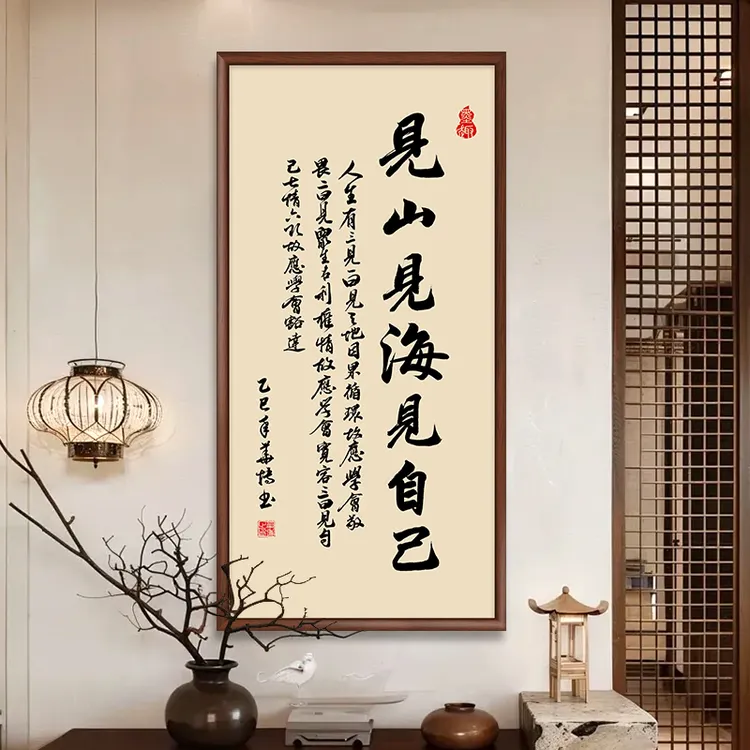 墨趣
見山見海見自己
人生有三見一曰見天地因果循環故應學會敬
畏二曰見眾生名利權情故應學會寬容三曰見自
己七情六欲故應學會豁達
乙巳年華书